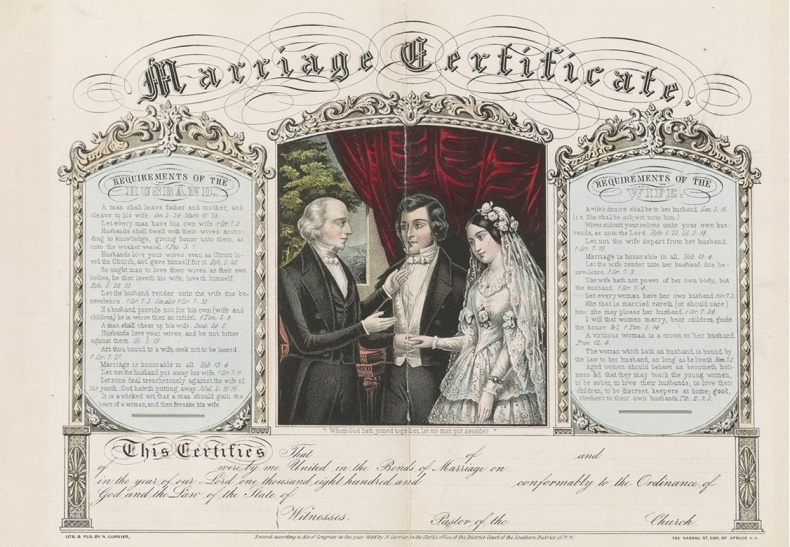 Marriage Certificate.
REQUIREMENTS OF THE
HUSBAND
A man shall leave father and mother, and
cleave to his wife. Gen. 2. 24. Mark 10.
Let every man have his own wife. 1 Cor. 7. 2.
Husbands shall dwell with their wives accor-
ding to knowledge, giving honor unto them, as
unto the weaker vessel. 1 Pet. 3. 7.
Husbands love your wives, even as Christ lo-
ved the Church, and gave himself for it. Eph. 5. 25.
So ought man to love their wives as their own
bodies, he that loveth his wife, loveth himself.
Eph. 5. 28. 33.
Let the husband render unto the wife due be-
nevolence. 1 Cor. 7. 3. See also 1 Cor. 7. 33.
If a husband provide not for his own (wife and
children) he is worse than an infidel. 1 Tim. 5. 8.
A man shall cheer up his wife. Deut. 24. 5.
Husbands love your wives, and be not bitter
against them. Col. 3. 19.
Art thou bound to a wife, seek not to be loosed.
1 Cor. 7. 27.
Marriage is honorable in all. Heb. 13. 4.
Let not the husband put away his wife. 1 Cor. 7. 11.
Let none deal treacherously against the wife of
his youth. God hateth putting away. Mal. 2. 15. 16.
It is a wicked art, that a man should gain the
heart of a woman, and then forsake his wife.
REQUIREMENTS OF THE
WIFE.
A wife's desire shall be to her husband. Gen. 3. 16.
(i.e. She shall be subject unto him.)
Wives submit yourselves unto your own hus-
bands, as unto the Lord. Eph. 5. 22. Col. 3. 18.
Let not the wife depart from her husband.
1 Cor. 7. 10.
Marriage is honorable in all. Heb. 13. 4.
Let the wife render unto her husband due be-
nevolence. 1 Cor. 7. 3.
The wife hath not power of her own body, but
the husband. 1 Cor. 7. 4.
Let every woman have her own husband. 1 Cor. 7. 2.
She that is married careth (or should care)
how she may please her husband. 1 Cor. 7. 34.
I will that women marry, bear children, guide
the house &c. 1 Tim. 5. 14.
A virtuous woman is a crown to her husband.
Prov. 12. 4.
The woman which hath an husband, is bound by
the law to her husband, so long as he liveth.
Aged women should behave as becometh holi-
ness &c that they may teach the young women,
to be sober, to love their husbands, to love their
children, to be discreet, keepers at home; good,
obedient to their own husbands. Tit. 2. 3. 5.
"Whom God hath joined together, let no man put asunder."
This Certifies That of and
of were by me United in the Bonds of Marriage on
in the year of our Lord one thousand eight hundred and conformably to the Ordinance of
God and the Law of the State of
Witnesses. Pastor of the Church.
LITH. & PUB. BY N. CURRIER, Entered according to Act of Congress in the year by N. Currier, in the Clerk's office of the District Court of the Southern District of N.Y. 152 NASSAU ST. COR. OF SPRUCE N.Y.